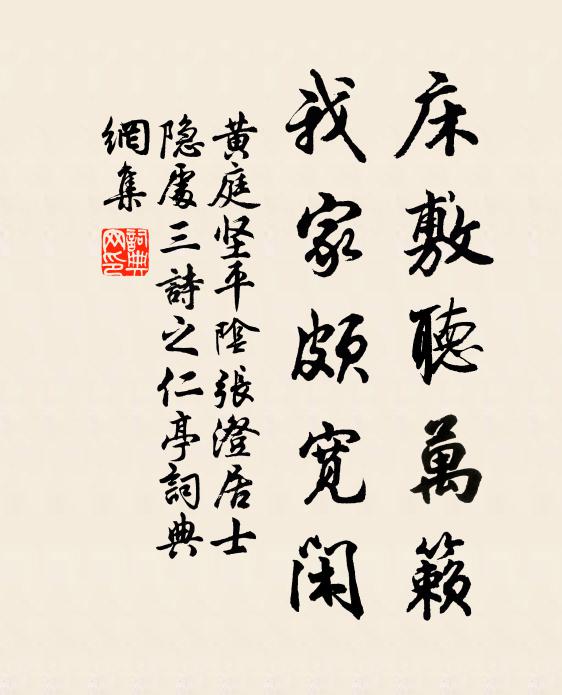 床敷聽萬籟
我家頗寬閑
黄庭坚平陰張澄居士
隐處三詩之仁亭詞典
網集
詞典網印